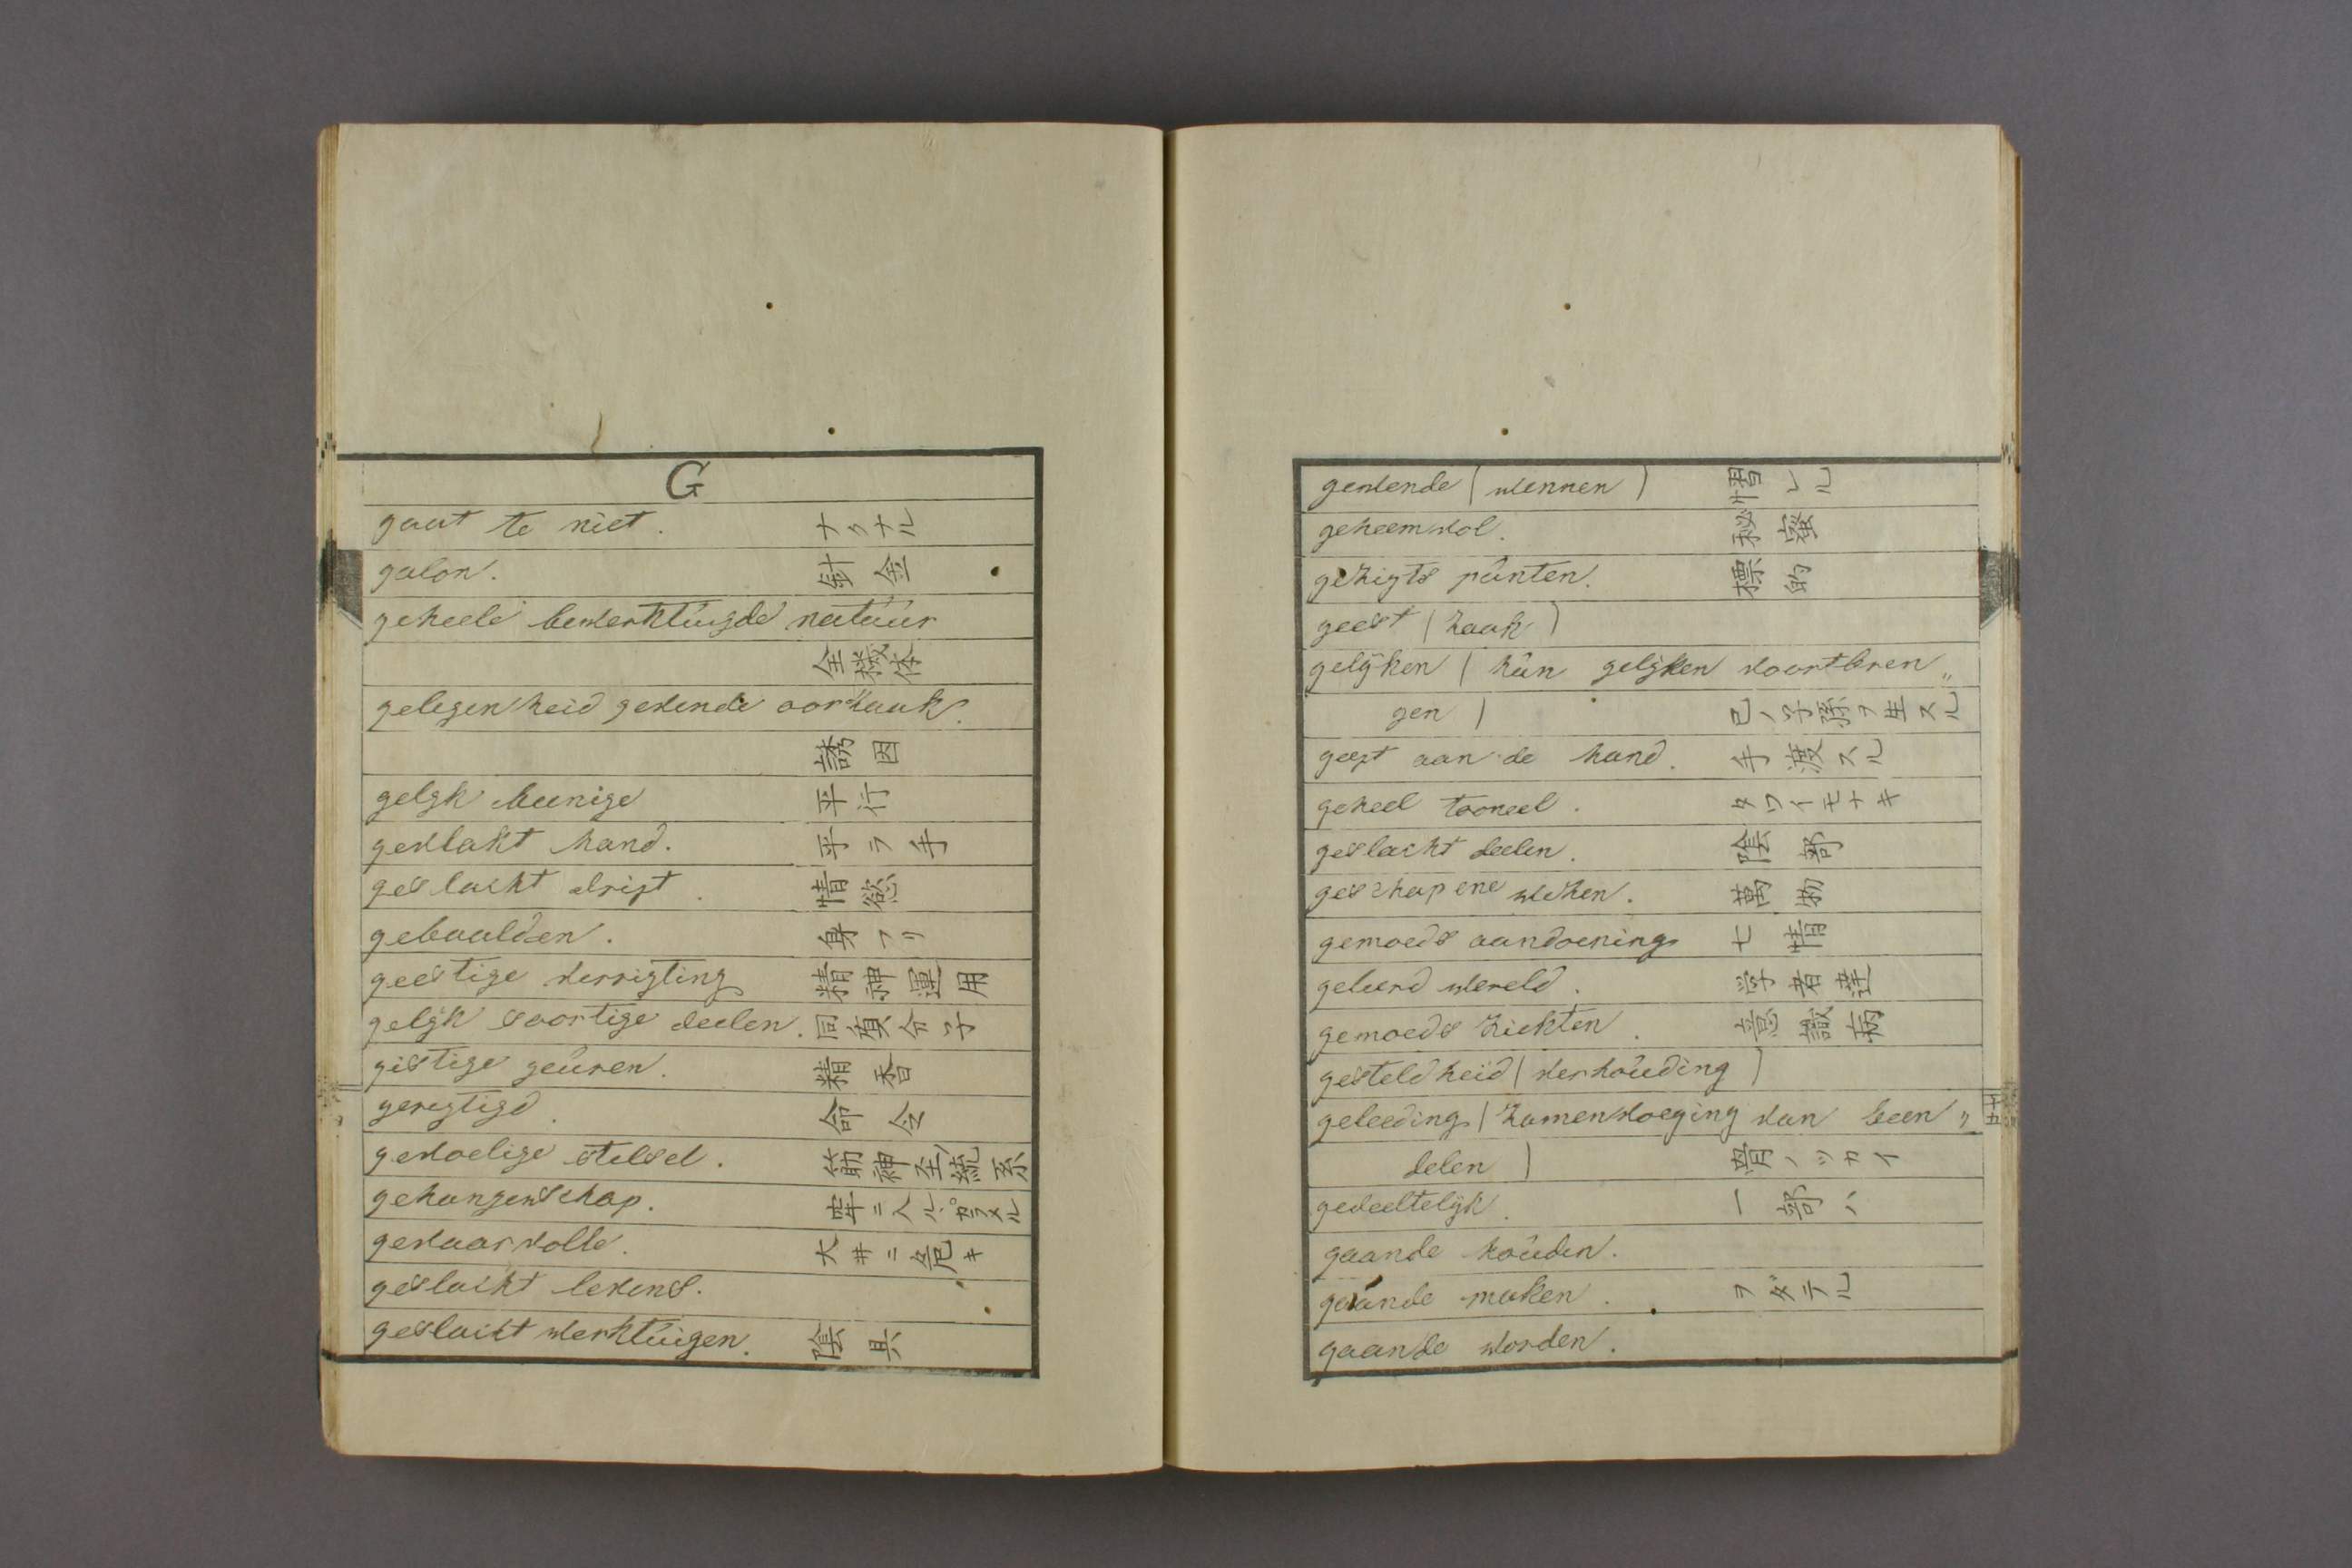 G
gaat te niet. ナクナル
galon. 針金
geheele bewerktuigde natuur
全機体
gelegenheid gevende oorzaak.
誘因
gelyk beenige 平行
gevlakt hand. 平ラ手
geslacht drift. 情慾
gebaalden. 身フリ
geestige verrigting 精神運用
gelyk soortige deelen. 同質分子
gistige geuren. 精香
geregtigd. 命令
gevoelige stelsel. 筋神全統系
gevangenschap. 牢ニ入ル
gevaarvolle. 大井ニ危キ
geslacht levens.
geslacht werktuigen. 陰具
gewende (wennen) 慣レル
geheemvol. 秘蜜
gezigts punten. 標的
geest (zaak)
gelyken (hun gelyken voortbren„
gen) 己ノ子孫ヲ生スル
geeft aan de hand. 手渡スル
geheel tooneel. タワイモナキ
geslacht deelen. 陰部
geschapene wezen. 萬物
gemoeds aandoening 七情
geleerd wereld. 学者達
gemoeds ziekten. 意識病
gesteldheid (verhouding)
geleeding (zamenvoeging van been„
delen) 骨ノツカイ
gedeeltelyk. 一部ハ
gaande houden.
gaande maken. ヲダテル
gaande worden.